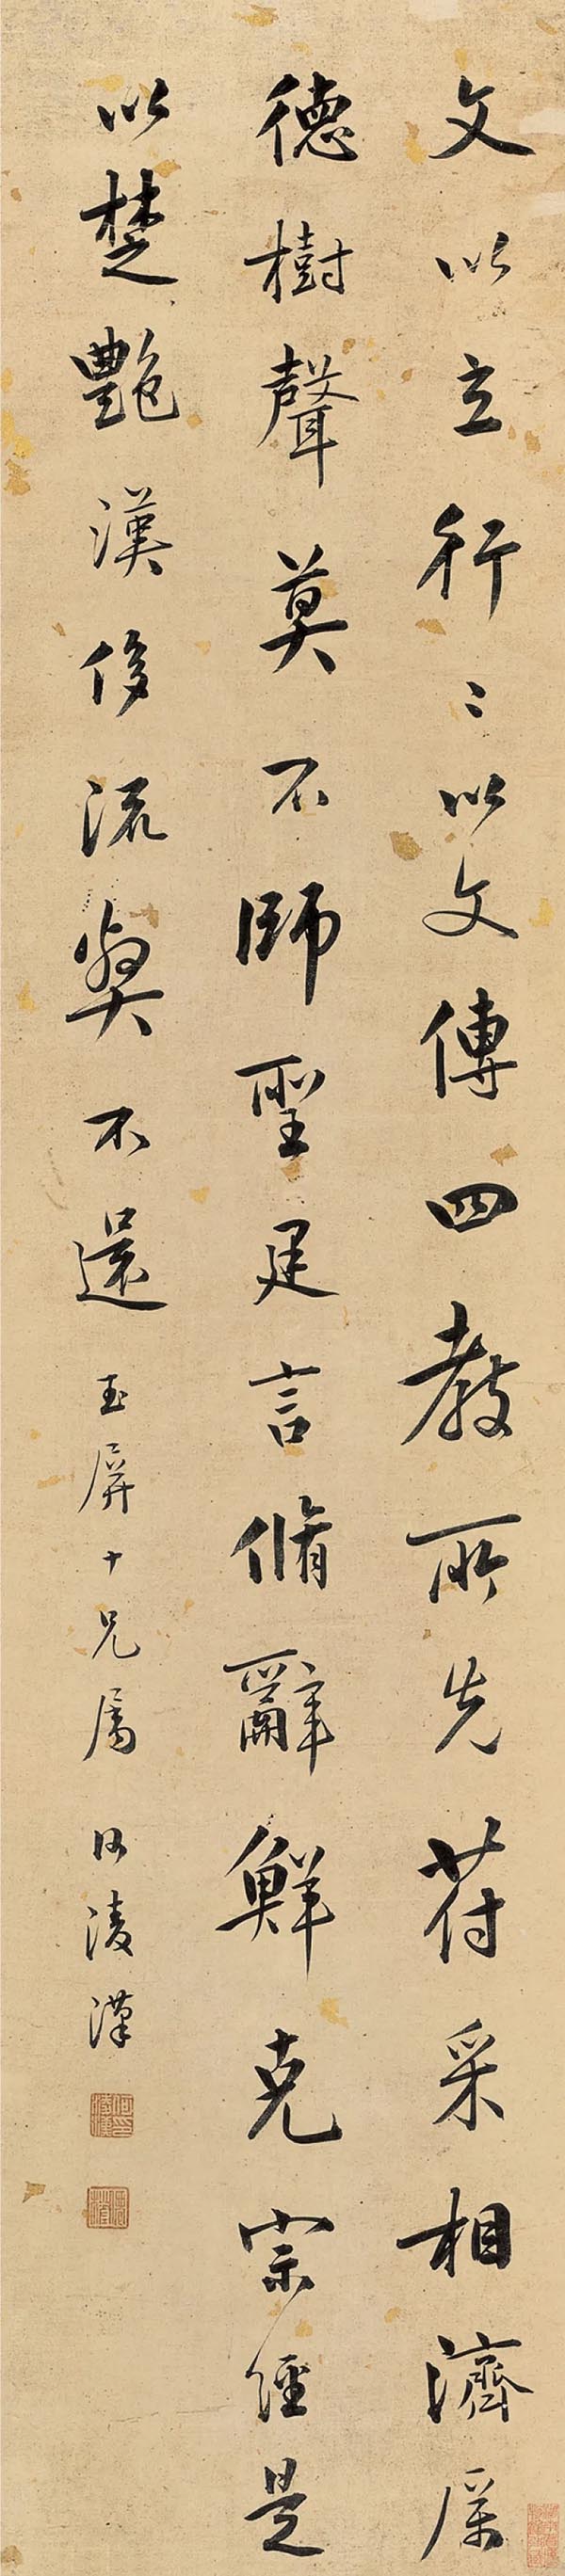 文以立行〻以文傳四教所先符采相濟厲
德樹聲莫不師聖建言脩辭鮮克宗經是
以楚艷漢侈流獘不還 玉屏十兄屬 何淩漢